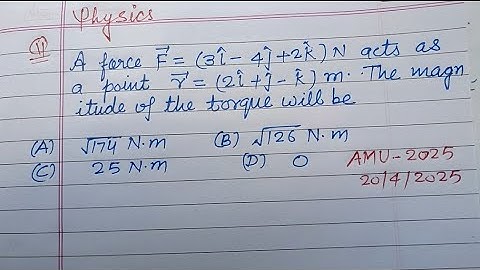 Physics
11 A force F⃗ = (3î - 4ĵ + 2k̂) N acts as
a point r⃗ = (2î + ĵ - k̂) m. The magn
itude of the torque will be
(A) √174 N.m (B) √126 N.m
(C) 25 N.m (D) 0
AMU-2025
20/4/2025